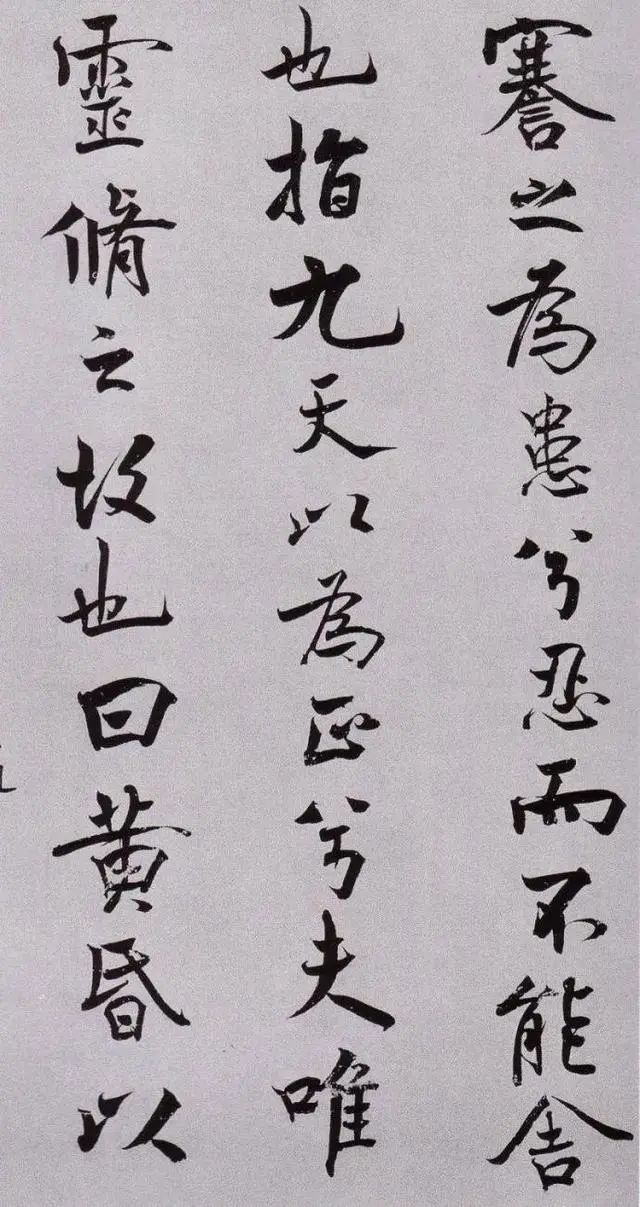 謇之為患兮忍而不能舍
也指九天以為正兮夫唯
靈脩之故也曰黄昏以